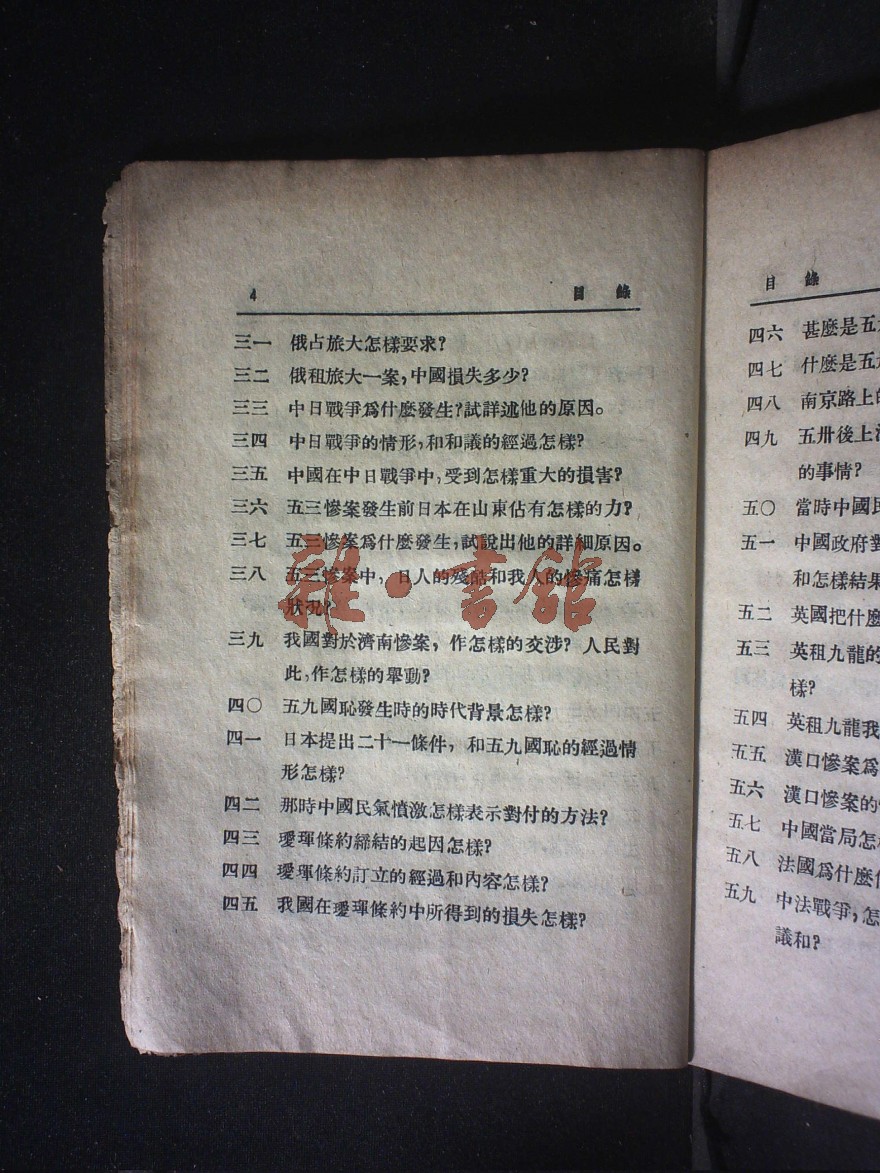 4 目錄
三一 俄占旅大怎樣要求？
三二 俄租旅大一案，中國損失多少？
三三 中日戰爭爲什麼發生？試詳述他的原因。
三四 中日戰爭的情形，和和議的經過怎樣？
三五 中國在中日戰爭中，受到怎樣重大的損害？
三六 五三慘案發生前日本在山東佔有怎樣的力？
三七 五三慘案爲什麼發生，試說出他的詳細原因。
三八 五三慘案中，日人的殘酷和我人的慘痛怎樣
狀況？
三九 我國對於濟南慘案，作怎樣的交涉？人民對
此，作怎樣的舉動？
四〇 五九國恥發生時的時代背景怎樣？
四一 日本提出二十一條件，和五九國恥的經過情
形怎樣？
四二 那時中國民氣憤激怎樣表示對付的方法？
四三 璦琿條約締結的起因怎樣？
四四 璦琿條約訂立的經過和內容怎樣？
四五 我國在璦琿條約中所得到的損失怎樣？
雜·書館
目錄
四六 甚麼是五
四七 什麼是五
四八 南京路上的
四九 五卅後上海
的事情？
五〇 當時中國民
五一 中國政府對
和怎樣結果
五二 英國把什麼
五三 英租九龍的
樣？
五四 英租九龍我
五五 漢口慘案爲
五六 漢口慘案的
五七 中國當局怎
五八 法國爲什麼
五九 中法戰爭，怎
議和？